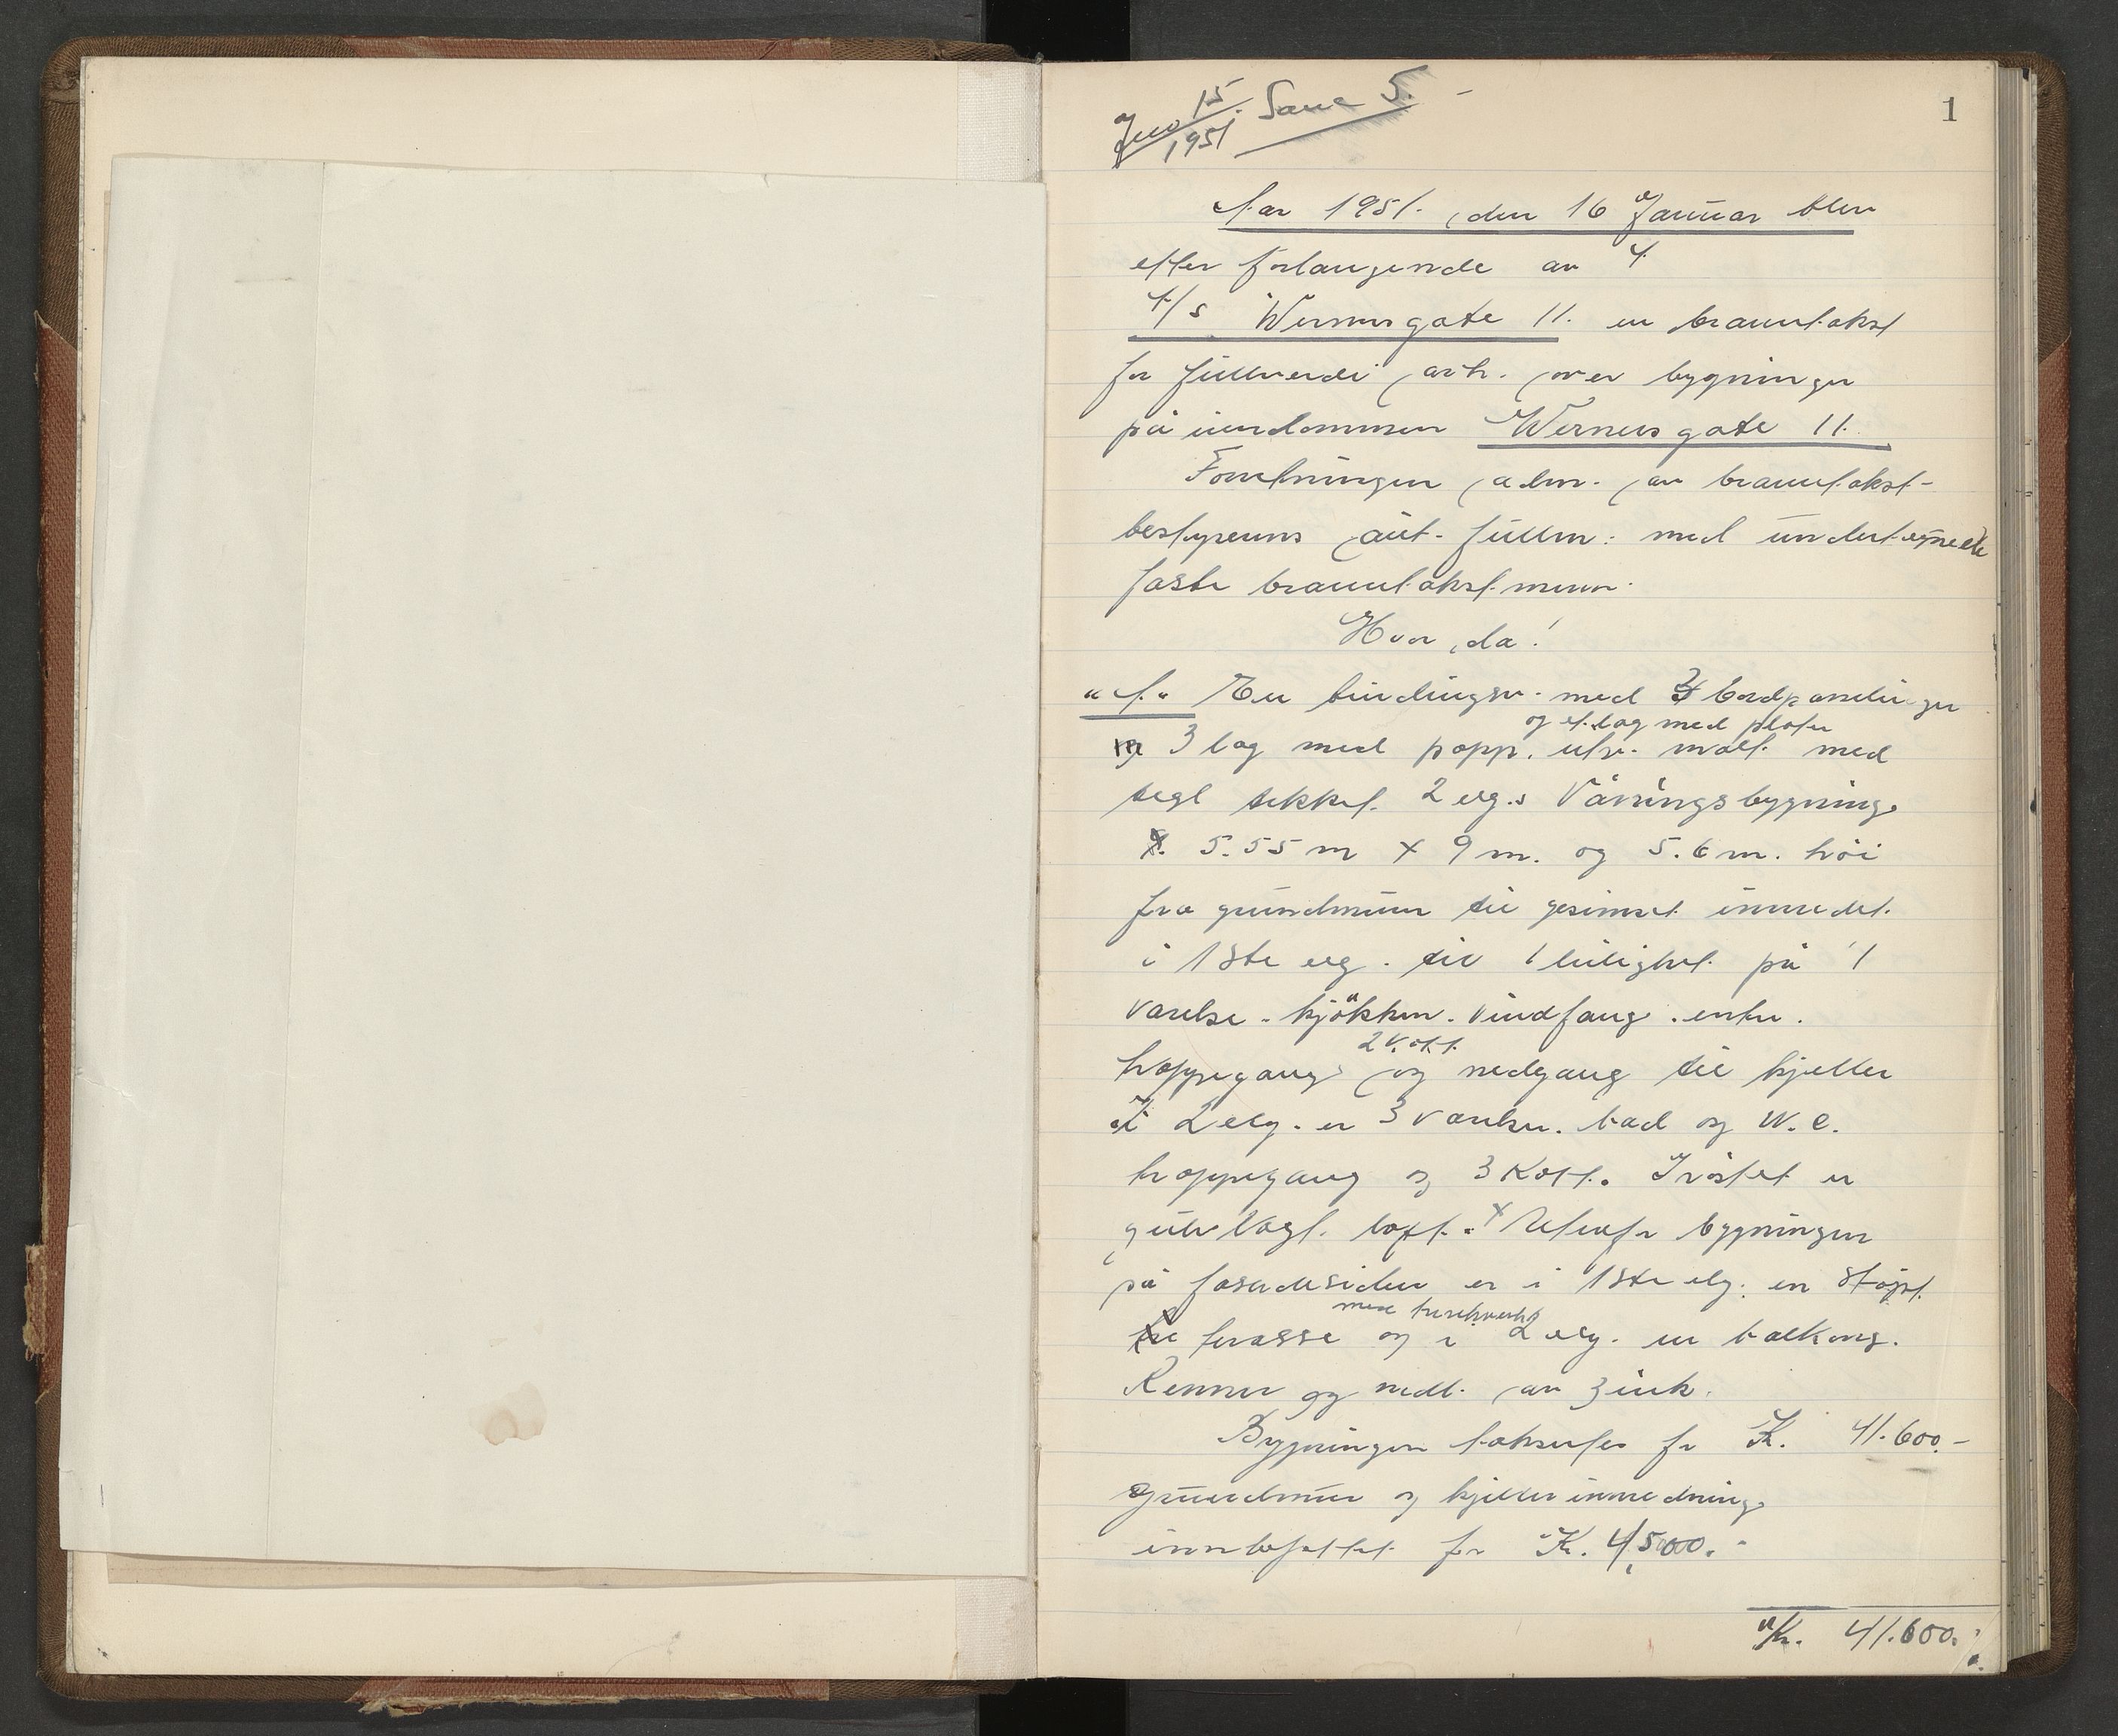 1
15/1951. Same 5. -
Aar 1951. den 16 Januar blev
efter forlangende av
A/S Wernersgate 11. en branntakst
for fullverdi arh. over bygninger
på eiendommen Wernersgate 11.
Forretningen adm. av branntakst-
bestyrerens aut. fullm. med undertegnede
faste branntakstmenn.
Hvor da!
"A." En bindingsv. med 2 bordpanelinger
og et lag med plater
3 lag med papp. utv. malt med
tegl tekket. 2 etg.s Våningsbygning
5.55 m x 9 m. og 5.6 m. höi
fra grundmur til gesimset innredet
i 1ste etg. til 1 leilighet på 1
værelse. kjökken. Vindfang. entre.
2 kott.
trappegang og nedgang til kjeller
I 2 etg. er 3 værelser. bad og W.C.
trappegang og 3 Kott. Tröstet er
gulvlagt loft. Utenfor bygningen
på fasadesiden er i 1ste etg. en stöpt
med trerekkverk
terasse og i 2 etg. en balkong.
Renner og nedl. av zink.
Bygningen takseres for Kr. 41.600.-
grundmur og kjellerinnredning
innbefattet for Kr. 4,500.-
Kr. 41.600.-